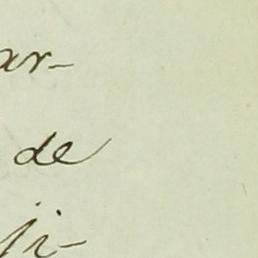 ar-
de
ji-